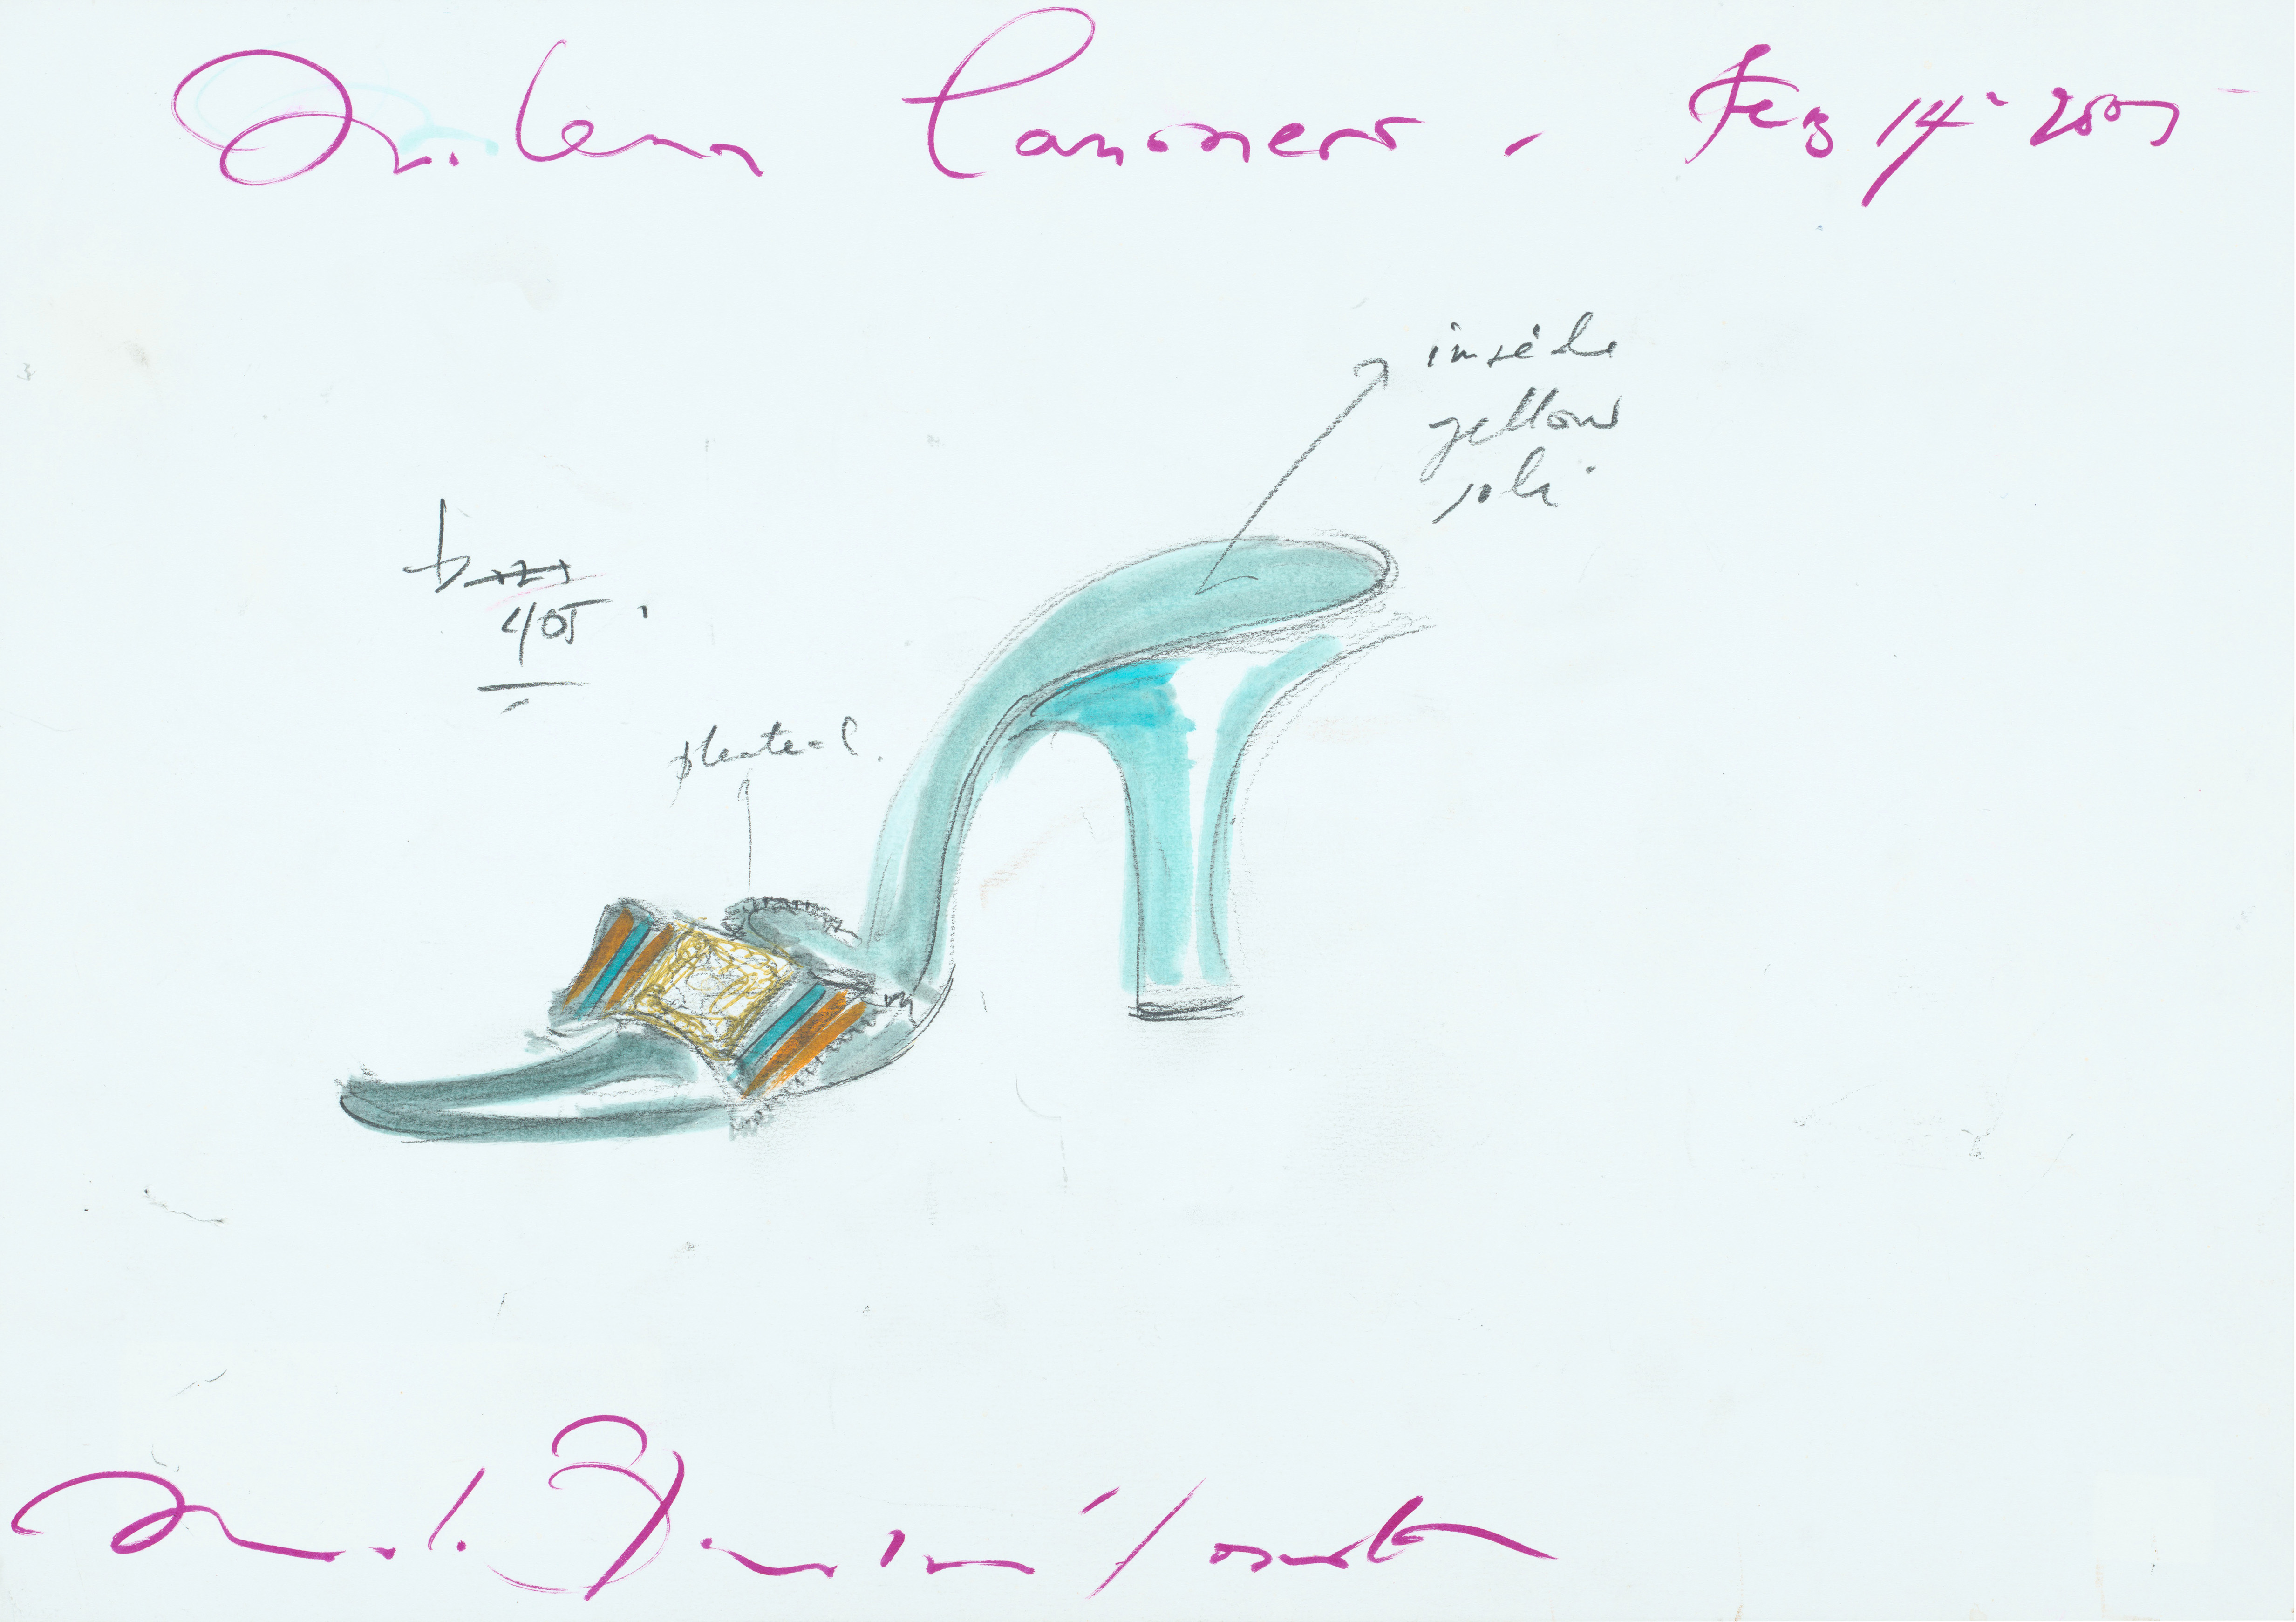 Milena Canonero - Feb 14 - 2005 -
inside
yellow
405
pleated.
Manolo Blahnik